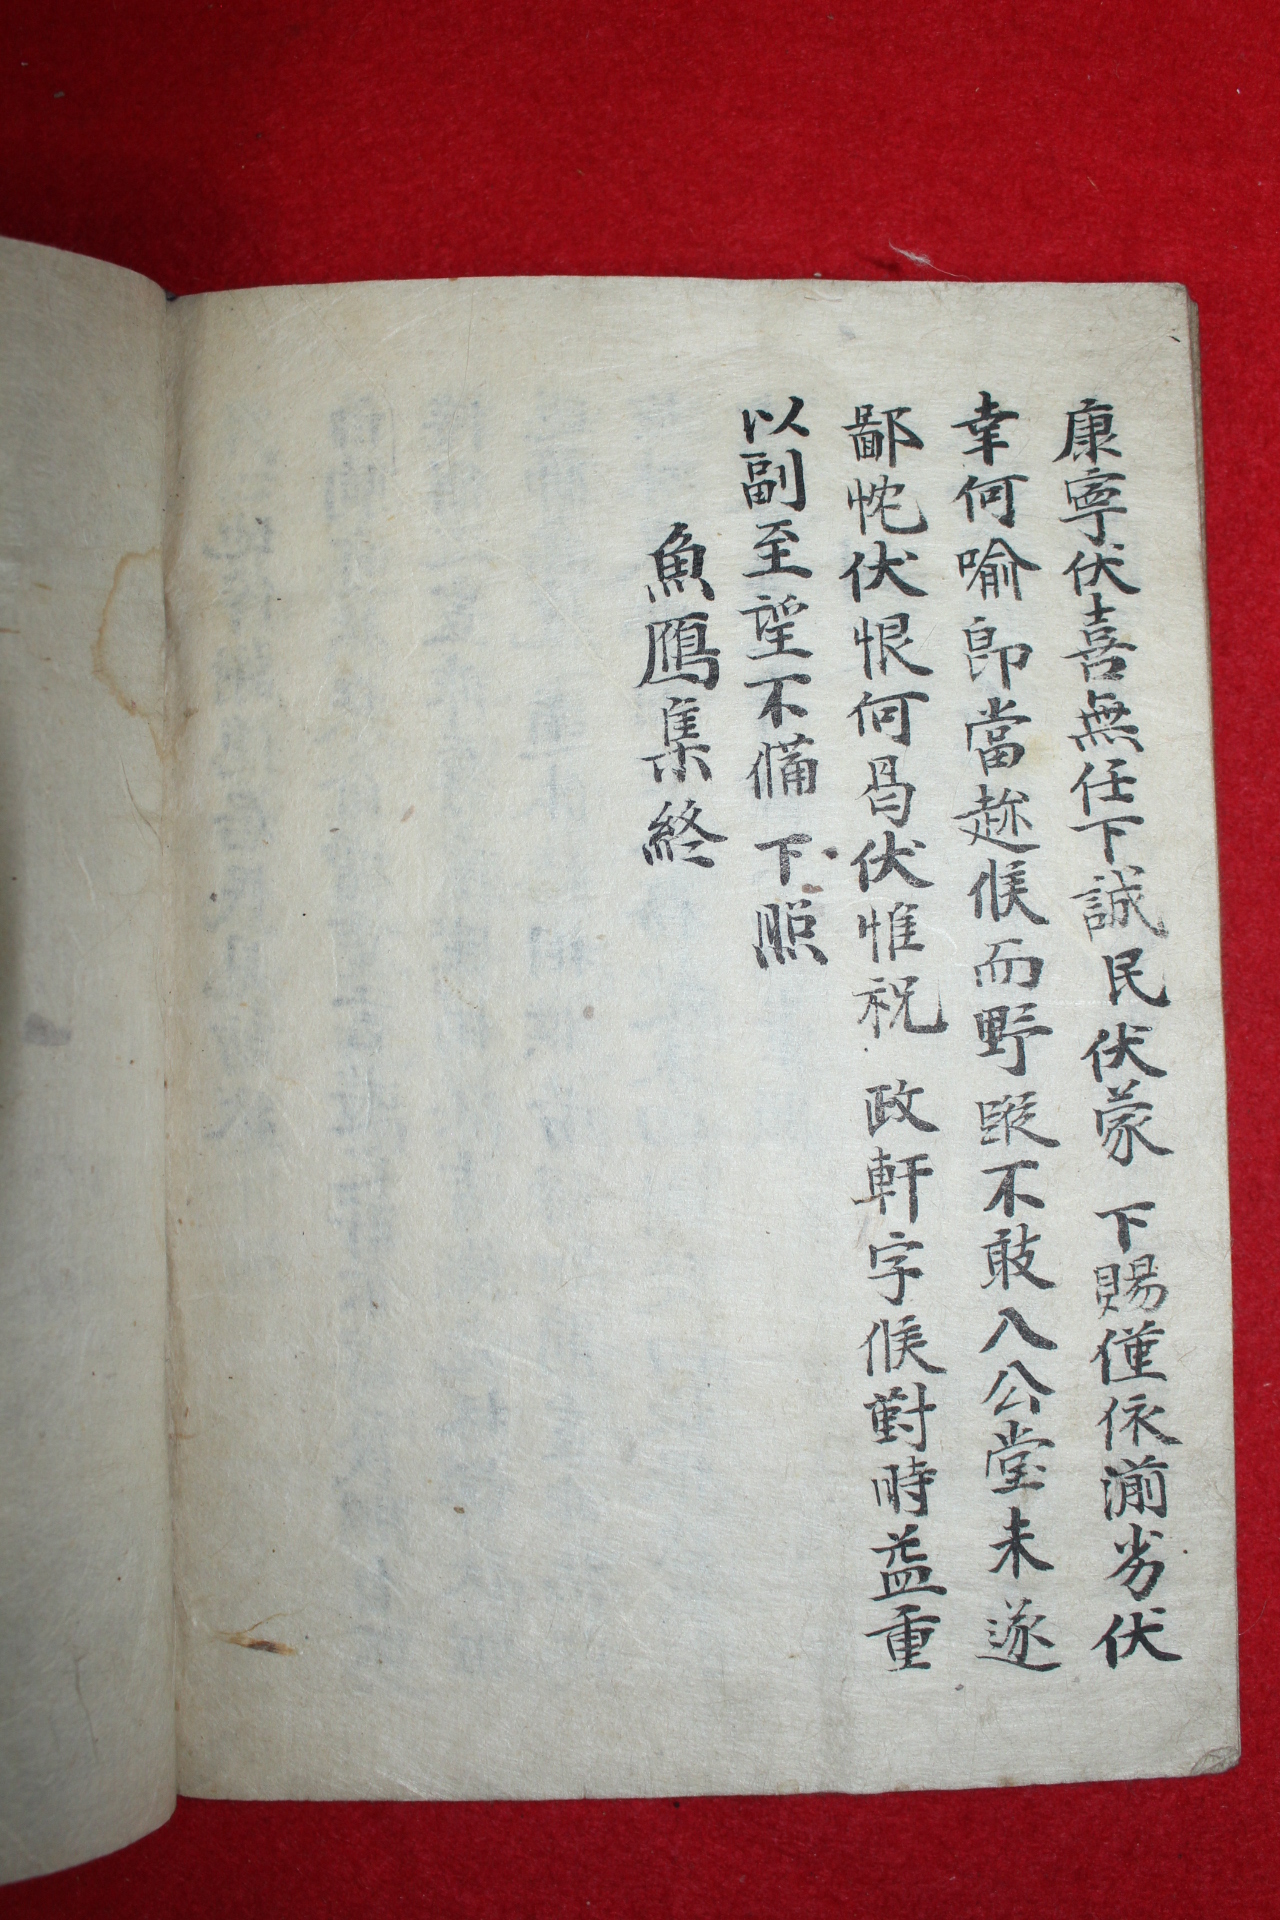 康寧伏喜無任下誠民伏蒙 下賜僅依湔劣伏
幸何喻卽當趂候而野蹤不敢入公堂未遂
鄙忱伏恨何曷伏惟祝 政軒字候對時益重
以副至望不備 下照
魚鴈集終